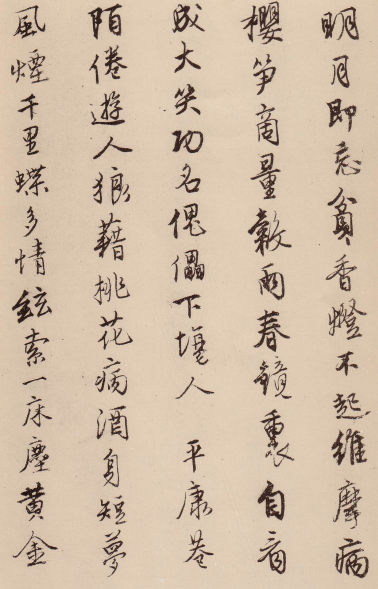 明月即忘貧香燈不起維摩病
櫻笋商量穀雨春鏡裏自看
成大笑功名傀儡下場人 平康巷
陌倦遊人狼藉桃花病酒身短夢
風煙千里蝶多情絃索一床塵黃金